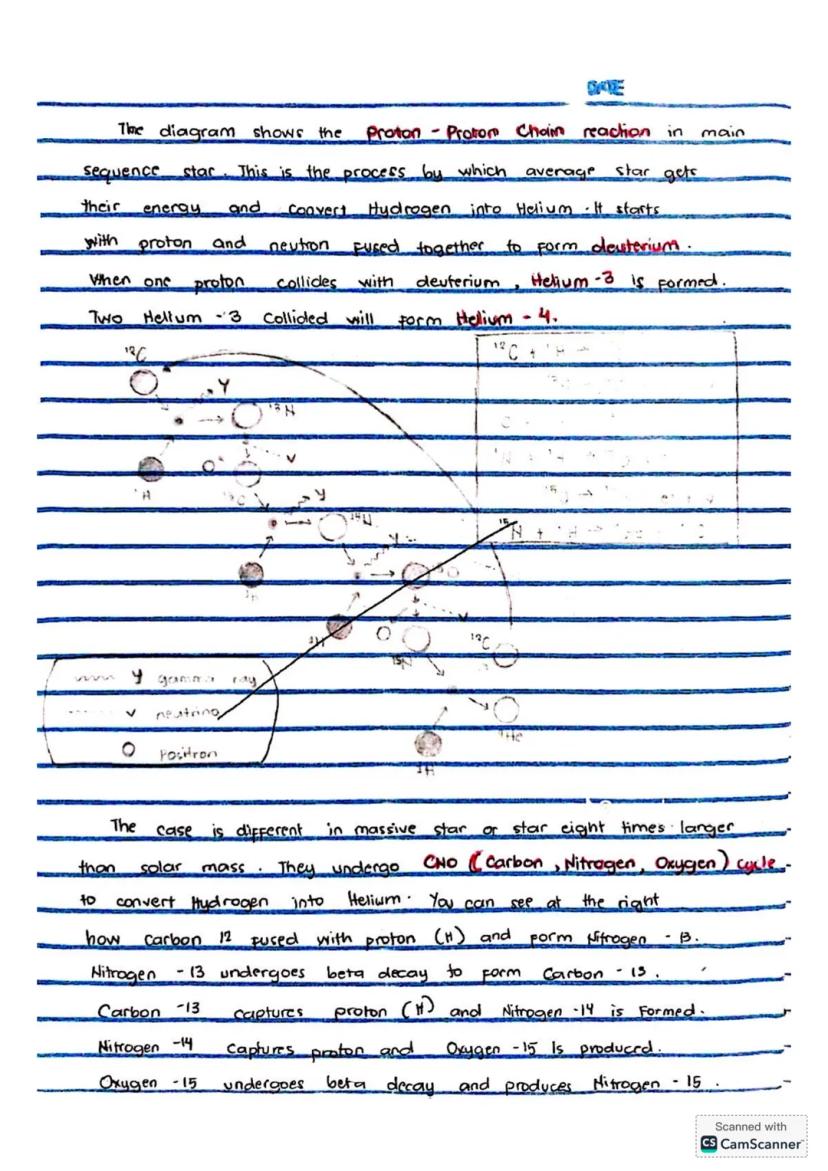 DATE
The diagram shows the Proton - Proton Chain reaction in main
sequence star. This is the process by which average star gets
their energy and convert Hydrogen into Helium. It starts
with proton and neutron fused together to form deuterium.
When one proton collides with deuterium, Helium -3 is formed.
Two Helium -3 Collided will form Helium - 4.
¹²C
¹²C + ¹H →
γ
¹³N
ν
¹H
¹³C
γ
¹⁴N
¹⁵N + ¹H →
γ
¹H
ν
¹H
¹⁵N
¹²C
γ gamma ray
ν neutrino
positron
⁴He
¹H
The case is different in massive star or star eight times larger
than solar mass. They undergo CNO (Carbon, Nitrogen, Oxygen) cycle
to convert Hydrogen into Helium. You can see at the right
how carbon 12 fused with proton (H) and form Nitrogen - 13.
Nitrogen -13 undergoes beta decay to form Carbon - 13.
Carbon -13 captures proton (H) and Nitrogen -14 is Formed.
Nitrogen -14 captures proton and Oxygen -15 Is produced.
Oxygen -15 undergoes beta decay and produces Nitrogen - 15.
Scanned with
CS CamScanner